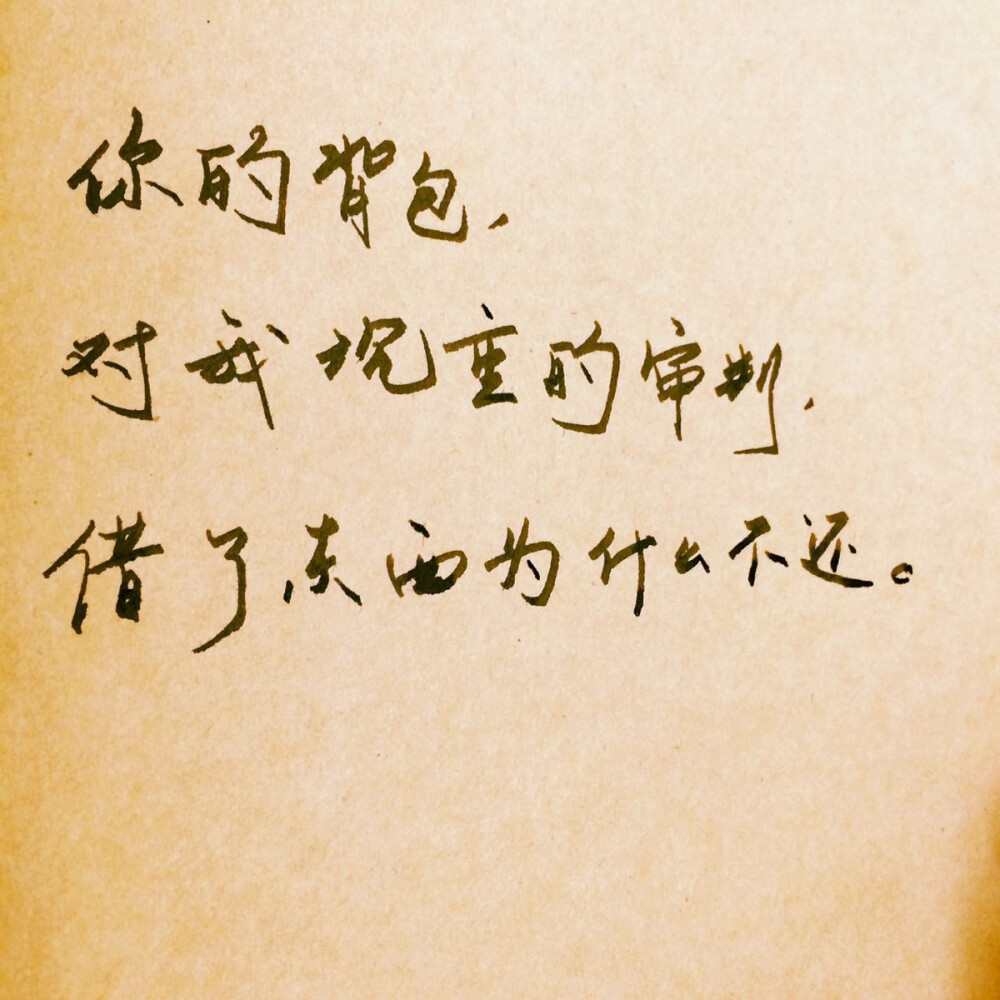 你的背包,
对我沉重的审判.
借了东西为什么不还。